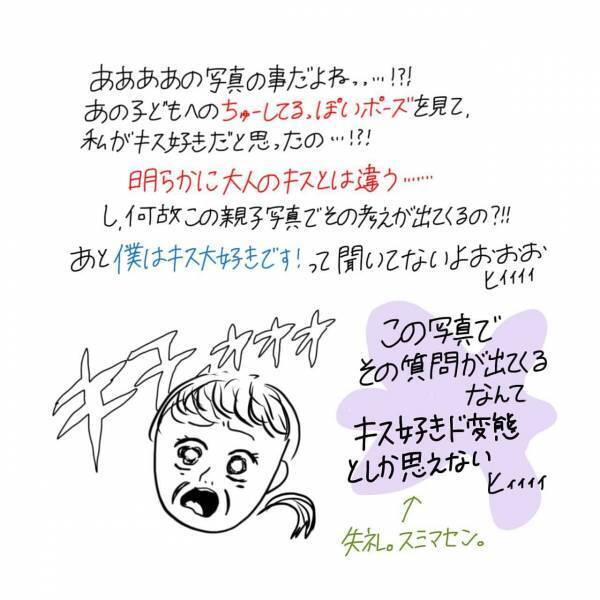 ああああの写真の事だよねっ、…!?!
あの子どもへのちゅーしてるっぽいポーズを見て、
私がキス好きだと思ったの…!?!
明らかに大人のキスとは違う……
し、何故この親子写真でその考えが出てくるの?!!
あと僕はキス大好きです!って聞いてないよおおお
ヒィィィィ
キモォォォ
この写真で
その質問が出てくる
なんて
キス好きド変態
としか思えない
ヒィィィィ
↑
失礼。スミマセン。